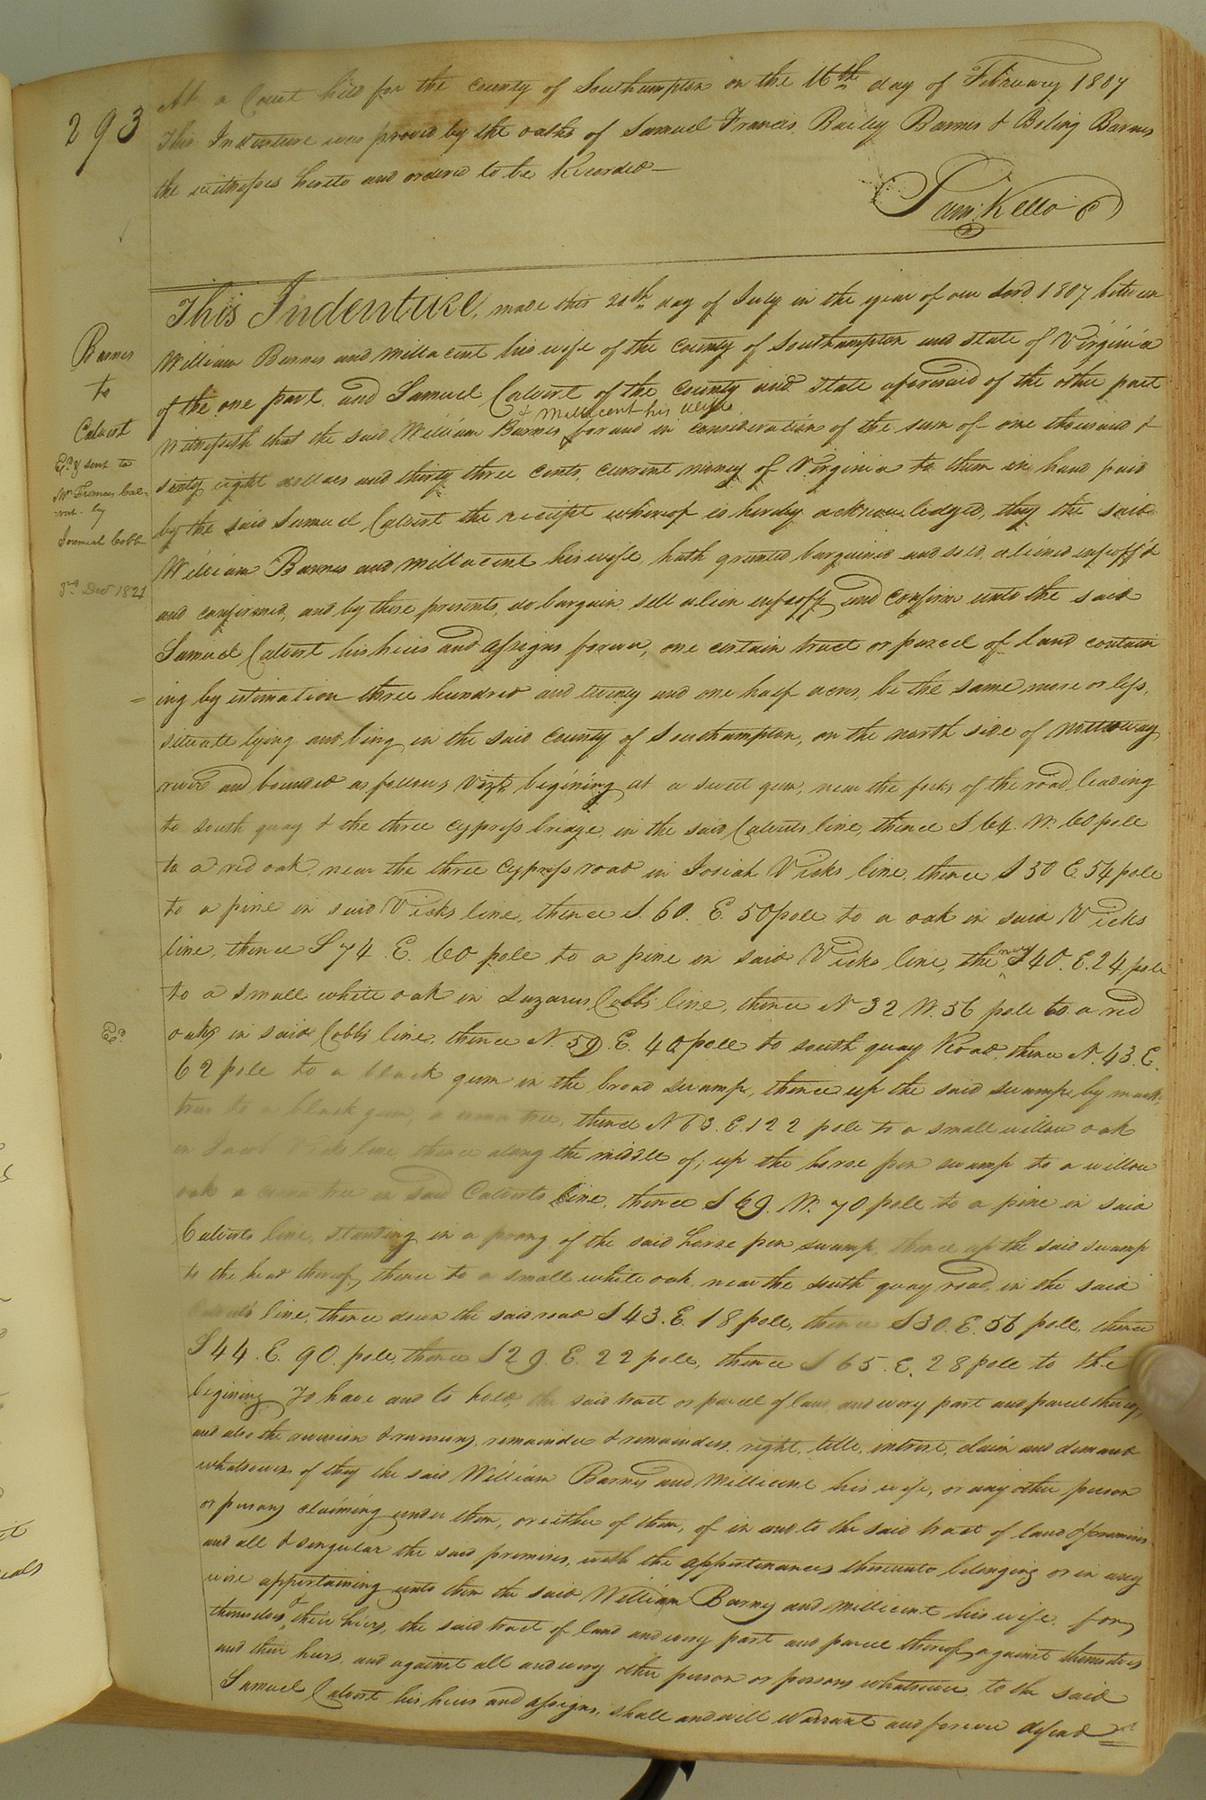 293
At a Court held for the County of Southampton on the 16th day of February 1807
This Indenture was proved by the oaths of Samuel Francis, Bailey Barnes & Boling Barnes
the witnesses hereto and ordered to be Recorded —
Sam. Kello
Barnes
to
Calvert
sent to
Mr Francis Cal-
-vert by
Jeremiah Cobb
3rd Decr 1821
This Indenture, made this 20th day of July in the year of our Lord 1807 between
William Barnes and Millacent his wife of the County of Southampton and State of Virginia
of the one part, and Samuel Calvert of the County and State aforesaid of the other part
& Millacent his wife
Witnesseth that the said William Barnes for and in consideration of the sum of one thousand &
sixty eight dollars and thirty three cents, current money of Virginia to them in hand paid
by the said Samuel Calvert the receipt whereof is hereby acknowledged, they the said
William Barnes and Millacent his wife hath granted bargained and sold, aliened enfeoff'd
and confirmed, and by these presents, do bargain, sell alien enfeoff, and confirm unto the said
Samuel Calvert his heirs and assigns forever, one certain tract or parcel of land contain
= ing by estimation three hundred and twenty and one half acres, be the same more or less,
situate lying and being in the said County of Southampton, on the north side of Nottoway
river and bounded as follows, Vizt, begining at a sweet gum, near the fork of the road leading
to south quay & the three cypress bridge, in the said Calverts line, thence S 64. W. 60 pole
to a red oak, near the three cypress road in Josiah Vicks line, thence S 30 E. 54 pole
to a pine in said Vicks line, thence S. 60. E. 50 pole to a oak in said Vicks
line, thence S 74. E. 60 pole to a pine in said Vicks line, thence S 40. E. 24 pole
to a small white oak in Lazarus Cobbs line, thence N 32 W. 56 pole to a red
oak in said Cobbs line, thence N. 59. E. 40 pole to south quay Road, thence N. 43. E.
62 pole to a black gum in the broad swamp, thence up the said swamp by mark'd
trees to a black gum, a corner tree, thence N 63. E. 122 pole to a small willow oak
in Jacob Vicks line, thence along the middle of, up the horse pen swamp to a willow
oak a corner tree in said Calverts line, thence S 69. W. 70 pole to a pine in said
Calverts line, standing in a prong of the said horse pen swamp, thence up the said swamp
to the head thereof, thence to a small white oak near the south quay road, in the said
Calverts line, thence down the said road S 43. E. 18 pole, thence S 30. E. 56 pole, thence
S 44. E. 90. pole, thence S 29. E. 22 pole, thence S 65. E. 28 pole to the
begining To have and to hold, the said tract or parcel of land and every part and parcel thereof,
and also the reversion & reversions, remainder & remainders, right, title, intrest, claim and demand
whatsoever of they the said William Barnes and Millicent his wife, or any other person
or persons claiming under them, or either of them, of in and to the said tract of land & premises
and all & singular the said premises, with the appertinances thereunto belonging or in any
wise appertaining unto them the said William Barnes and Millicent his wife for
themselves & their heirs, the said tract of land and every part and parcel thereof, against themselves
and their heirs, and against all and every other person or persons whatsoever to the said
Samuel Calvert his heirs and assigns, shall and will Warrant and forever defend